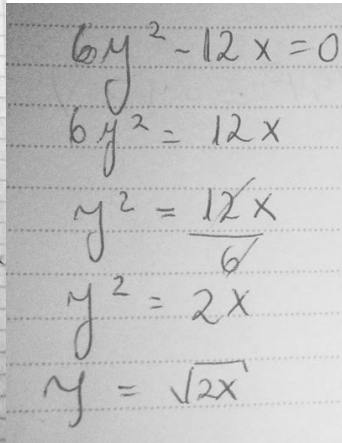 6y² - 12x = 0
6y² = 12x
y² = 12x/6
y² = 2x
y = √2x